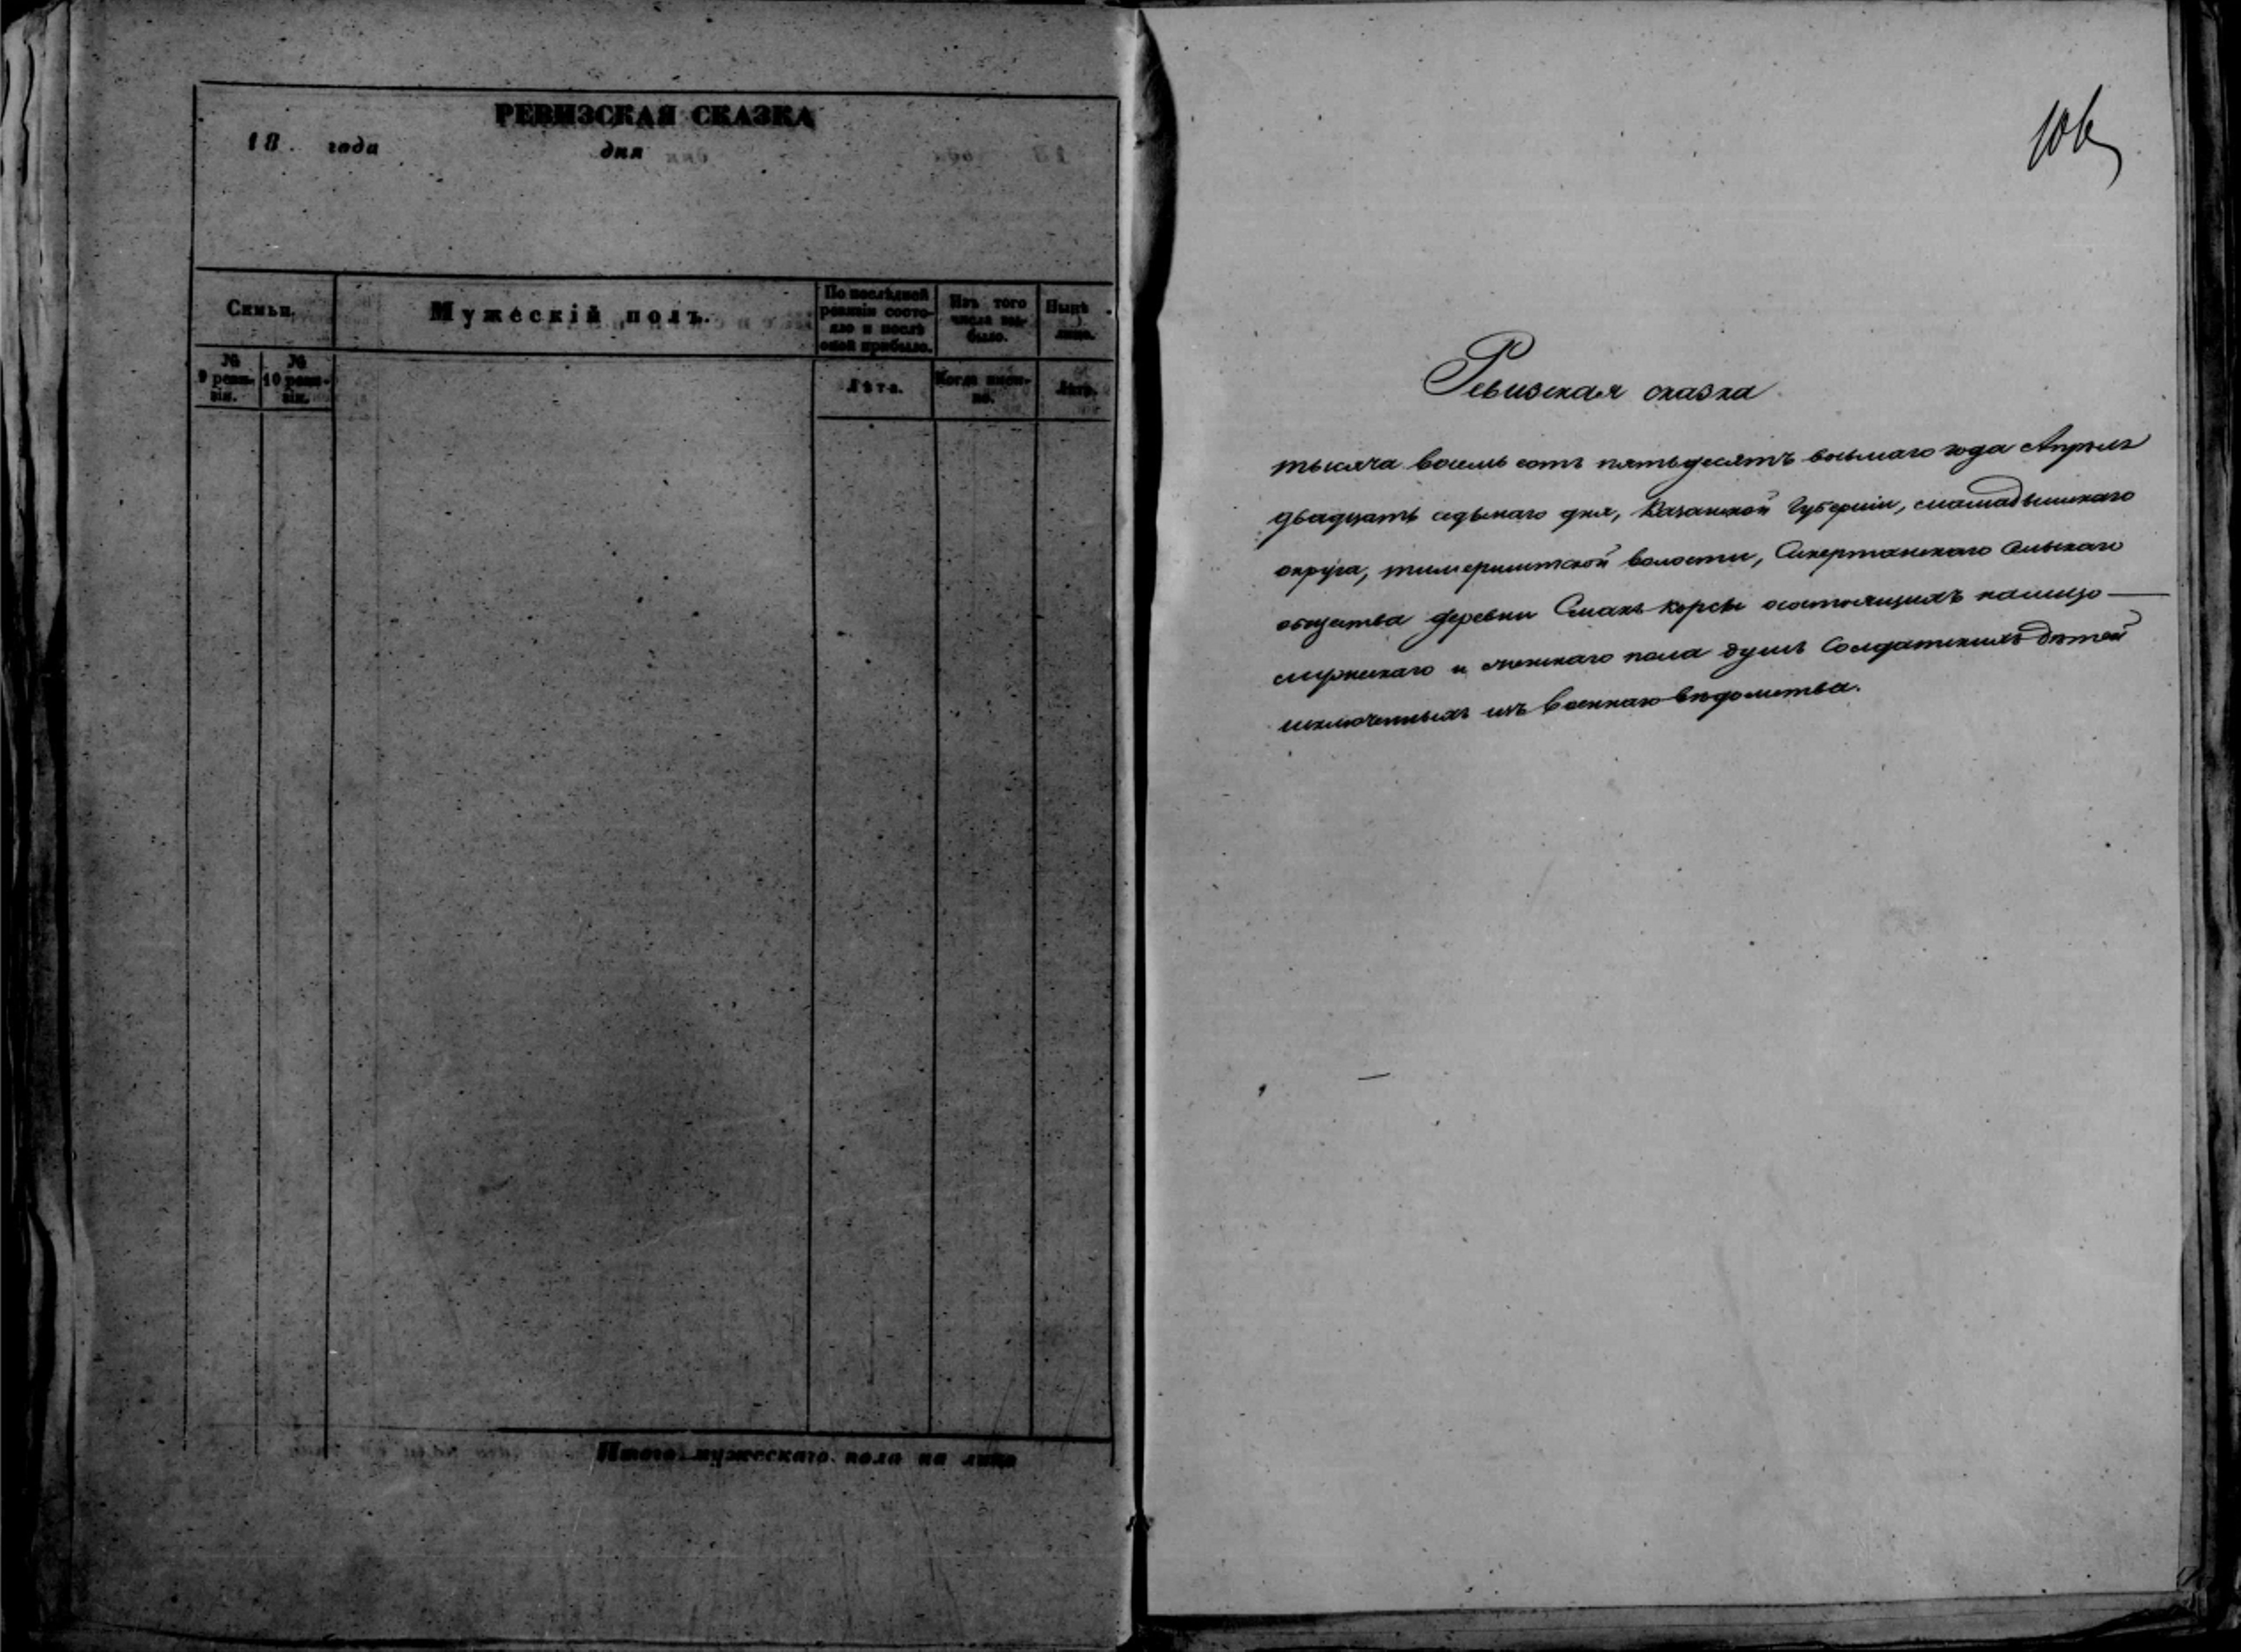 РЕВИЗСКАЯ СКАЗКА
18 года дня
Семьи.
Мужескій полъ.
По послѣдней ревизіи состояло и послѣ оной прибыло.
Изъ того числа выбыло.
Нынѣ на лицо.
№ 9 ревизіи.
№ 10 ревизіи.
Лѣта.
Когда именно.
Лѣта.
Итого мужескаго пола на лицо
106
Ревизская сказка
тысяча восемь сотъ пятьдесятъ восьмаго года Апрѣля
двадцать седьмаго дня, Казанской Губерніи, мамадышскаго
округа, волости, Сельскаго
общества деревни состоящихъ налицо
мужескаго и женскаго пола душъ Солдатскихъ дѣтей
исключенныхъ изъ военнаго вѣдомства.